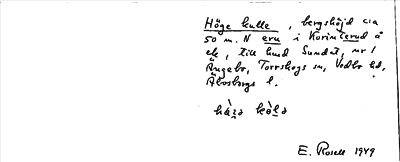 Höge kulle, bergshöjd c:a
50 m. N eru i Korinterud å
ek, till hmd Sundat, nr 1
Ängebo, Torrskogs sn, Vedbo hd,
Älvsborgs l.
hö̀gə kàlə
E. Rosell 1949